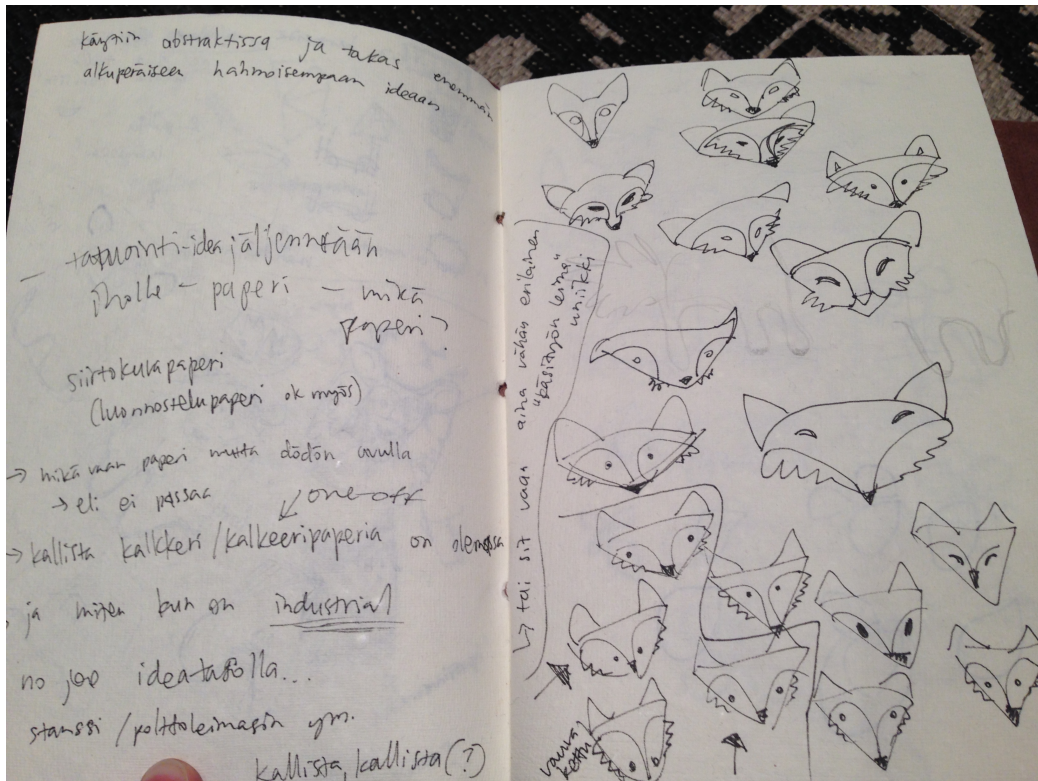 käytiin abstraktissa ja takas enemmän
alkuperäiseen hahmoisempaan ideaan
- tatuointi-idea jäljennetään
iholle - paperi - mikä
paperi?
siirtokuvapaperi
(luonnostelupaperi ok myös)
→ mikä vaan paperi mutta dödön avulla
→ eli ei passaa
↙ one-off
→ kallista kalkkeri/kalkeeripaperia on olemassa
ja miten kun on industrial
no joo ideatasolla...
stanssi/polttoleimasin ym.
kallista, kallista(?)
↳ tai sit vaan aina vähän erilainen
"käsityön leima"
uniikki
vauva
kettu